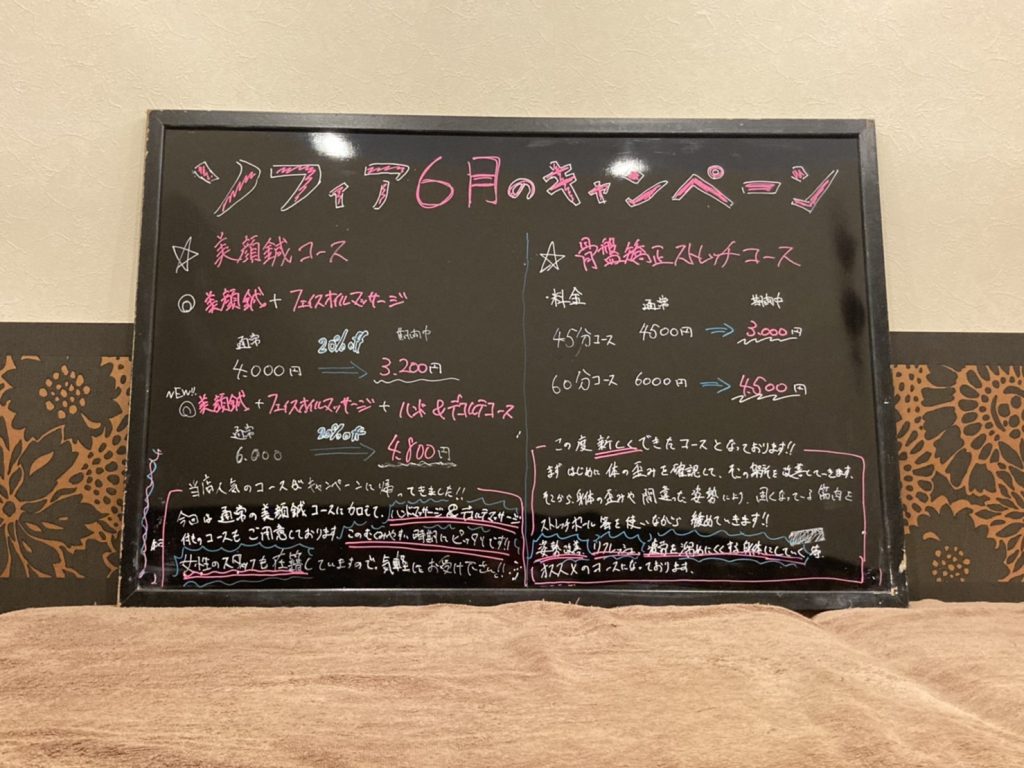 ソフィア6月のキャンペーン
☆ 美顔鍼コース
◎ 美顔鍼+フェイスオイルマッサージ
通常 20%off 期間中
4.000円 ⇒ 3.200円
NEW!!
◎ 美顔鍼+フェイスオイルマッサージ+ハンド&デコルテコース
通常 20%off
6.000 ⇒ 4.800円
当店人気のコースがキャンペーンに帰ってきました!!
今回は通常の美顔鍼コースに加えて、ハンドマッサージ&デコルテマッサージ
付のコースもご用意しております。このむくみやすい時期にピッタリです!!
女性のスタッフも在籍していますので気軽にお受け下さい!!
☆ 骨盤矯正ストレッチコース
・料金 通常 期間中
45分コース 4500円 ⇒ 3.000円
60分コース 6000円 ⇒ 4.500円
この度新しくできたコースとなっております!!
まずはじめに体の歪みを確認して、その場所を改善していきます。
そこから身体の歪みや間違った姿勢により、固くなっている筋肉を
ストレッチポール等を使いながら緩めていきます!!
姿勢改善、リフレッシュ、疲労を溜めにくくする身体にしていく等
オススメのコースになっております。